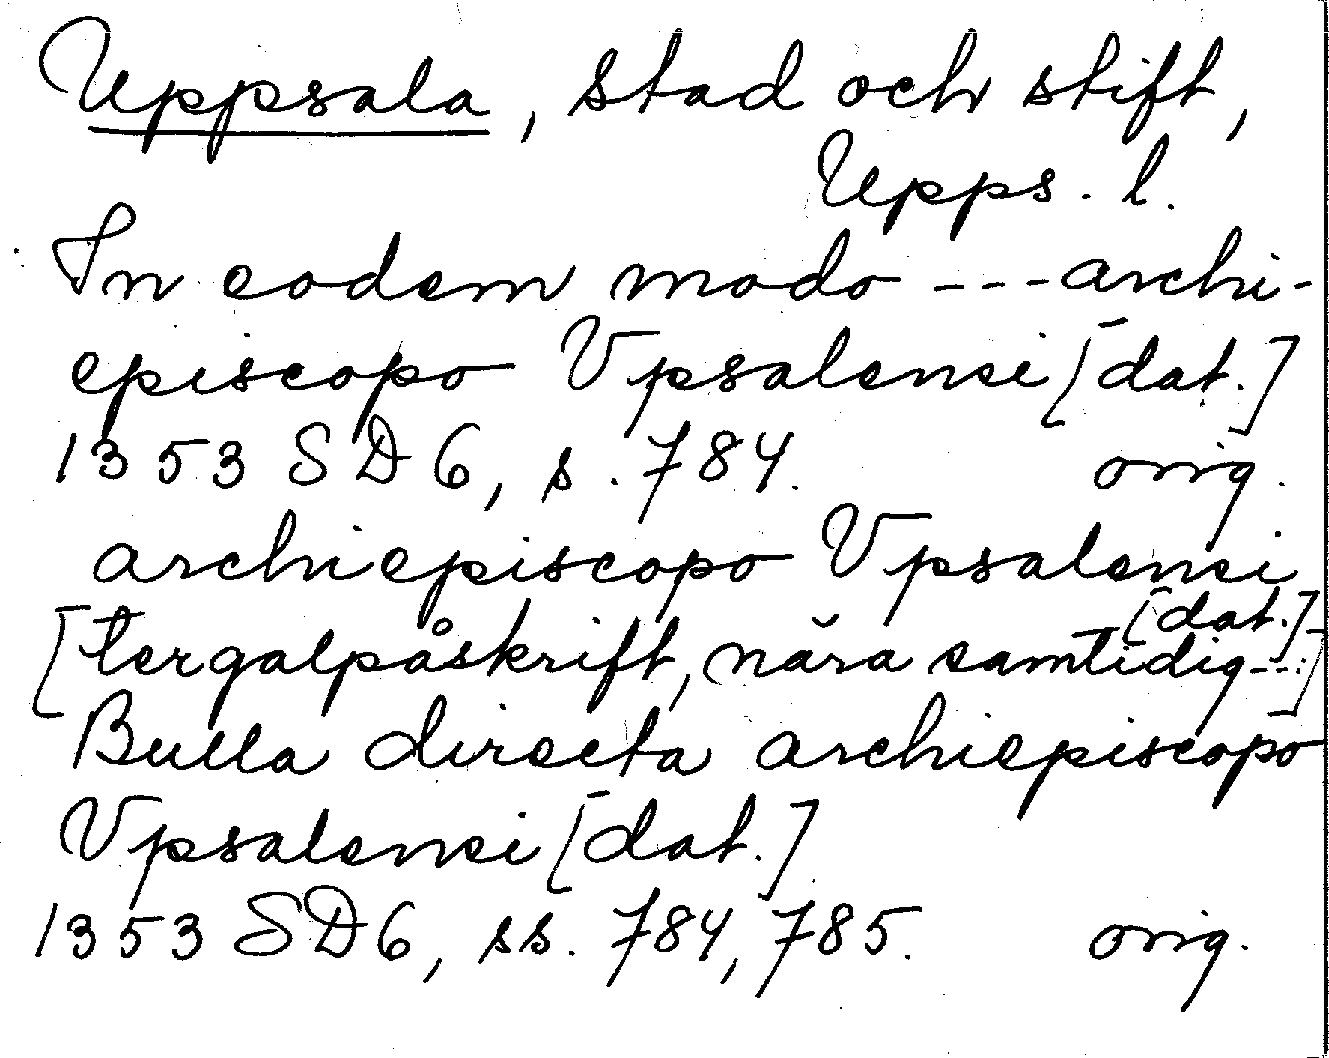 Uppsala, stad och stift,
Upps. l.
In eodem modo --- archi-
episcopo Vpsalensi [dat.]
1353 SD 6, s. 784. orig.
archiepiscopo Vpsalensi
[dat.]
[tergalpåskrift, nära samtidig---]
Bulla directa archiepiscopo
Vpsalensi [dat.]
1353 SD 6, ss. 784, 785. orig.